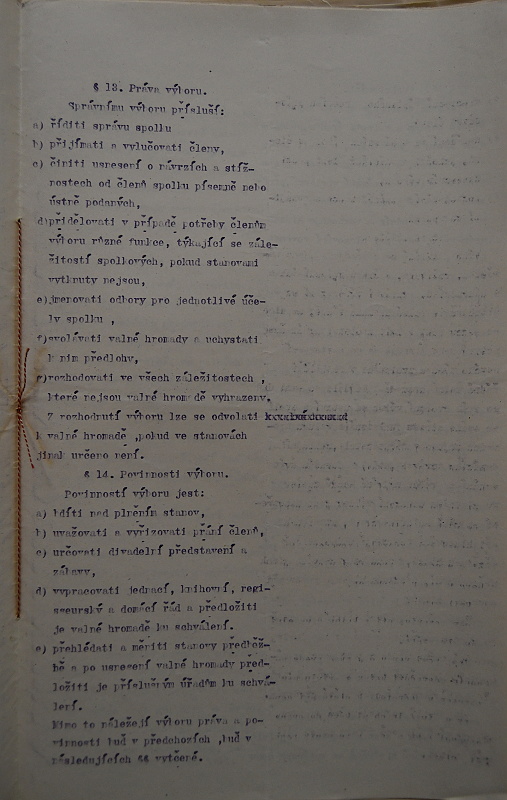 § 13. Práva výboru.
Správnímu výboru přísluší:
a) říditi správu spolku
b) přijímati a vylučovati členy,
c) činiti usnesení o návrzích a stíž-
nostech od členů spolku písemně nebo
ústně podaných,
d)přidělovati v případě potřeby členům
výboru různé funkce, týkající se zále-
žitostí spolkových, pokud stanovami
vytknuty nejsou,
e)jmenovati odbory pro jednotlivé úče-
ly spolku ,
f)svolávati valné hromady a uchystati
k nim předlohy,
g)rozhodovati ve všech záležitostech ,
které nejsou valné hromadě vyhrazeny.
Z rozhodnutí výboru lze se odvolati
k valné hromadě ,pokud ve stanovách
jinak určeno není.
§ 14. Povinnosti výboru.
Povinností výboru jest:
a) bdíti nad plněním stanov,
b) uvažovati a vyřizovati přání členů,
c) určovati divadelní představení a
zábavy,
d) vypracovati jednací, knihovní, regi-
sseurský a domácí řád a předložiti
je valné hromadě ku schválení.
e) přehlédati a měniti stanovy předběž-
ně a po usnesení valné hromady před-
ložiti je příslušným úřadům ku schvá-
lení.
Mimo to náležejí výboru práva a po-
vinnosti buď v předchozích ,buď v
následujících §§ vytčené.